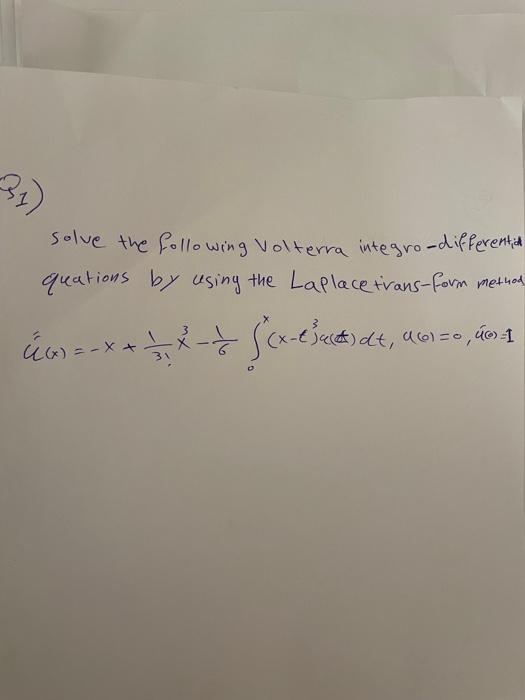 Q1)
Solve the following Volterra integro-differential
quations by using the Laplace trans-form method
u''(x) = -x + 1/3! x^3 - 1/6 ∫_0^x (x-t)^3 u(t) dt, u(0)=0, u'(0)=1